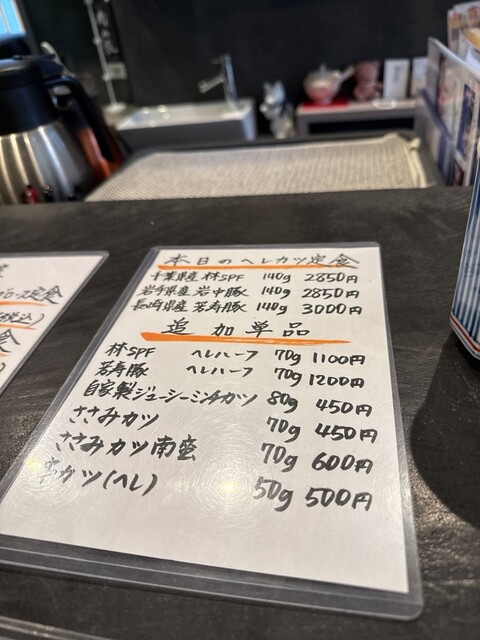 本日のヘレカツ定食
千葉県産 林SPF 140g 2850円
岩手県産 岩中豚 140g 2850円
長崎県産 芳寿豚 140g 3000円
追加単品
林SPF ヘレハーフ 70g 1100円
芳寿豚 ヘレハーフ 70g 1200円
自家製ジューシーミンチカツ 80g 450円
ささみカツ 70g 450円
ささみカツ南蛮 70g 600円
串カツ(ヘレ) 50g 500円
ロース定食
税込)
食